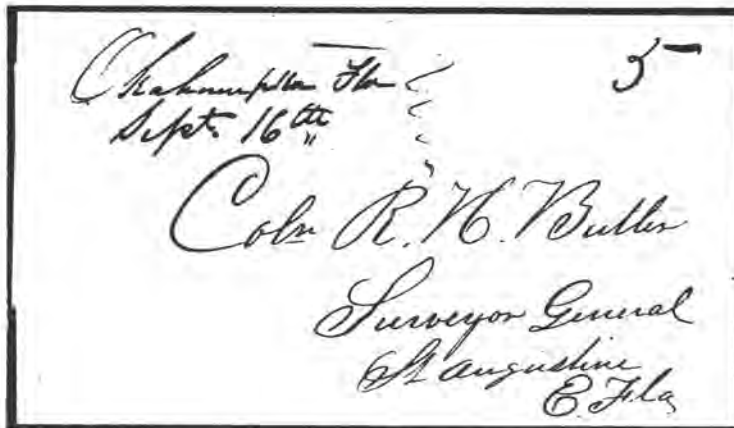 Okahumpka Fla
5
Sept. 16th
Coln R. W. Butler
Surveyor General
St Augustine
E. Fla